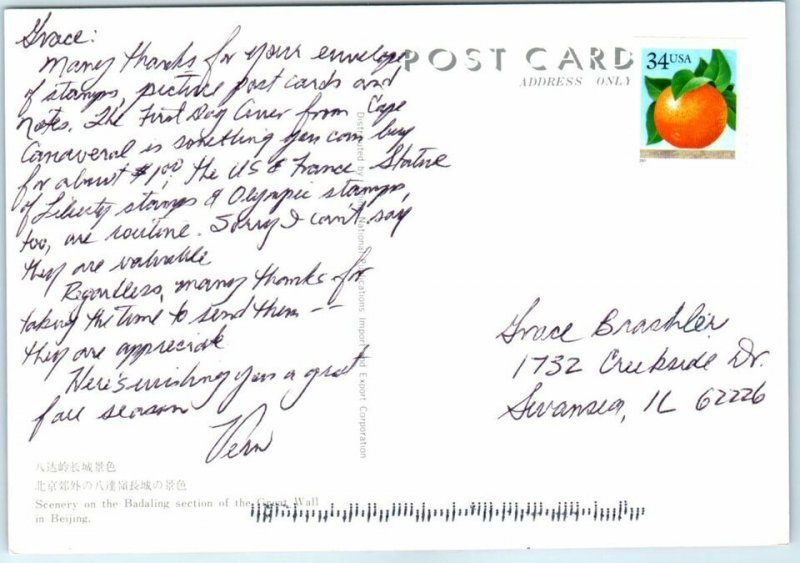 Grace:
Many thanks for your envelope
of stamps, picture post cards and
notes. The First Day Cover from Cape
Canaveral is something you can buy
for about $1.00, the US & France Statue
of Liberty stamps & Olympic stamps,
too, are routine. Sorry I can't say
they are valuable
Regardless, many thanks for
taking the time to send them --
they are appreciate
Here's wishing you a great
fall season
Vern
八达岭长城景色
北京郊外の八達嶺長城の景色
Scenery on the Badaling section of the Great Wall
in Beijing.
POST CARD
ADDRESS ONLY
34 USA
Grace Brashler
1732 Creekside Dr.
Swansea, IL 62226
Distributed by National Publications Import and Export Corporation